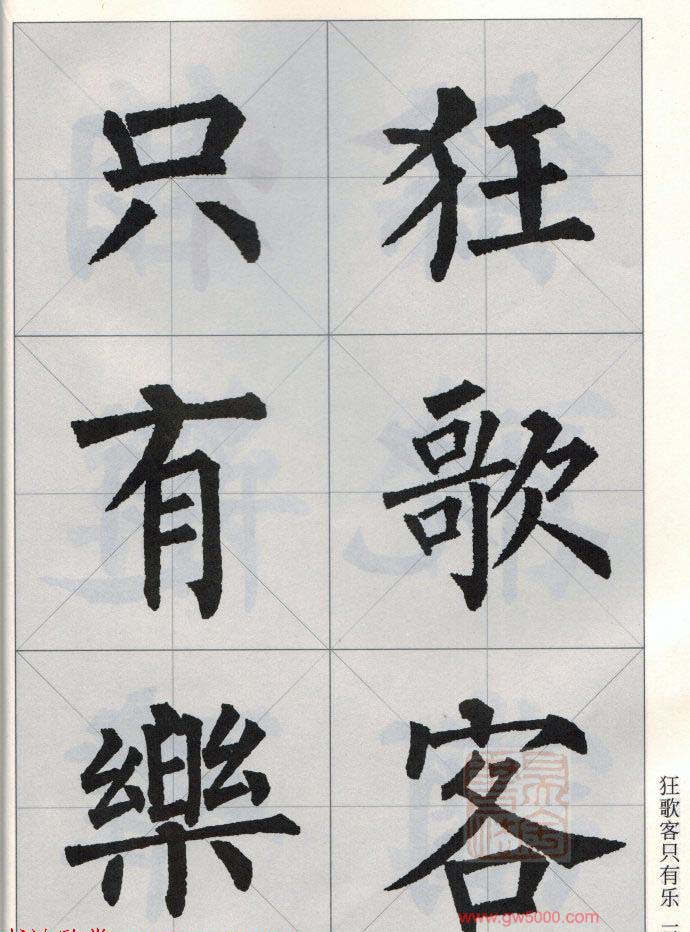 狂歌客
只有樂
狂歌客只有乐
www.gw5000.com